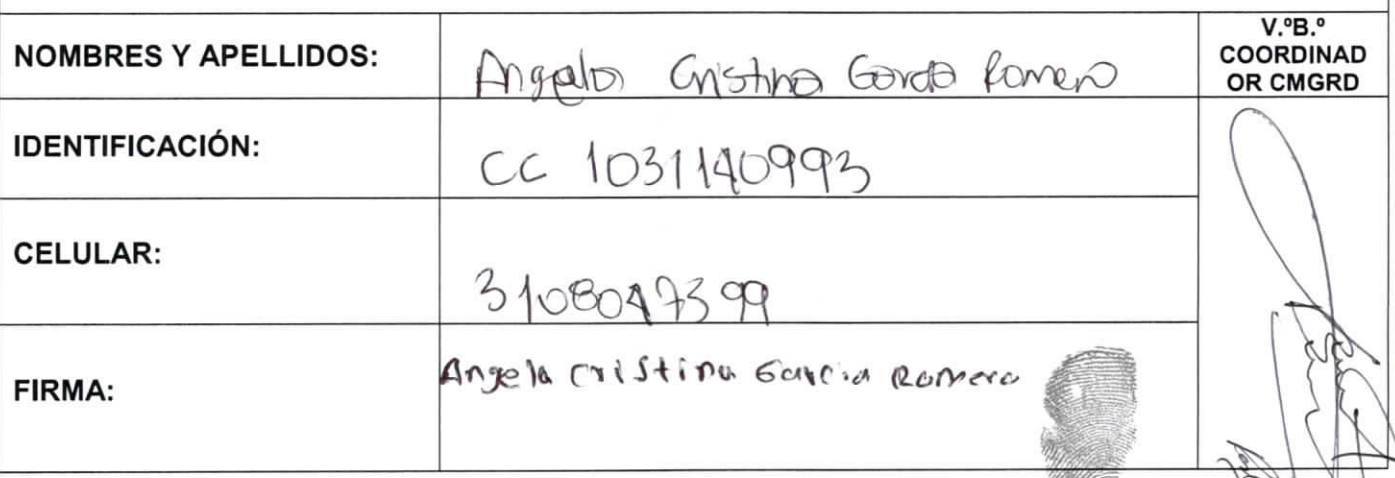 NOMBRES Y APELLIDOS: Angela Cristina Garcia Romero
V.ºB.º
COORDINAD
OR CMGRD
IDENTIFICACIÓN: CC 1031140993
CELULAR: 3108047399
FIRMA: Angela Cristina Garcia Romero